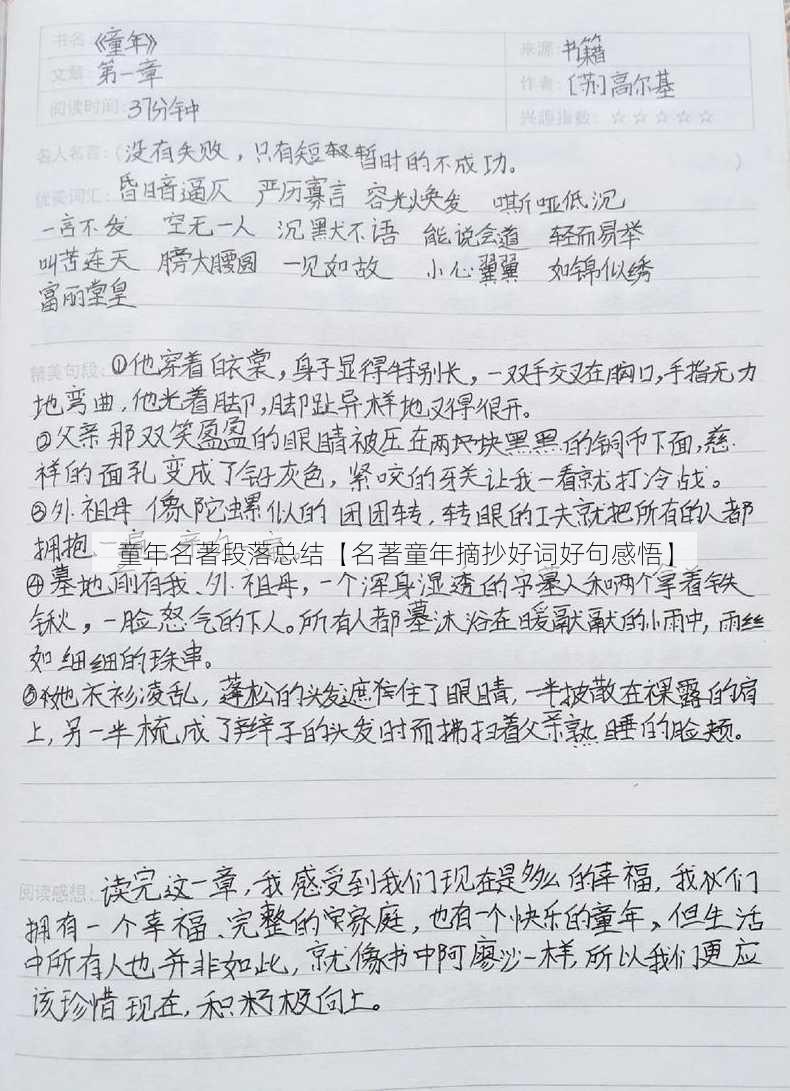 书名：《童年》
来源：书籍
文题：第一章
作者：[苏]高尔基
阅读时间：37分钟
兴趣指数：☆☆☆☆☆
名人名言：(没有失败，只有短暂时的不成功。)
优美词汇：昏暗逼仄 严历寡言 容光焕发 嘶哑低沉
一言不发 空无一人 沉默不语 能说会道 轻而易举
叫苦连天 膀大腰圆 一见如故 小心翼翼 如锦似绣
富丽堂皇
精美句段：①他穿着白衣裳，身子显得特别长，一双手交叉在胸口，手指无力
地弯曲，他光着脚，脚趾异样地叉得很开。
②父亲那双笑盈盈的眼睛被压在两块黑黑的铜币下面，慈
祥的面孔变成了铅灰色，紧咬的牙关让我一看就打冷战。
③外祖母像陀螺似的团团转，转眼的工夫就把所有的人都
拥抱
童年名著段落总结【名著童年摘抄好词好句感悟】
④墓地前有我、外祖母，一个浑身湿透的守墓人和两个拿着铁
锹，一脸怒气的下人。所有人都沐浴在暖融融的小雨中，雨丝
如细细的珠串。
⑤她衣衫凌乱，蓬松的头发遮住了眼睛，一半披散在裸露的肩
上，另一半梳成了辫子的头发时而拂扫着父亲熟睡的脸颊。
阅读感想：读完这一章，我感受到我们现在是多么的幸福，我们
拥有一个幸福、完整的家庭，也有一个快乐的童年、但生活
中所有人也并非如此，就像书中阿廖沙一样，所以我们更应
该珍惜现在，积极向上。